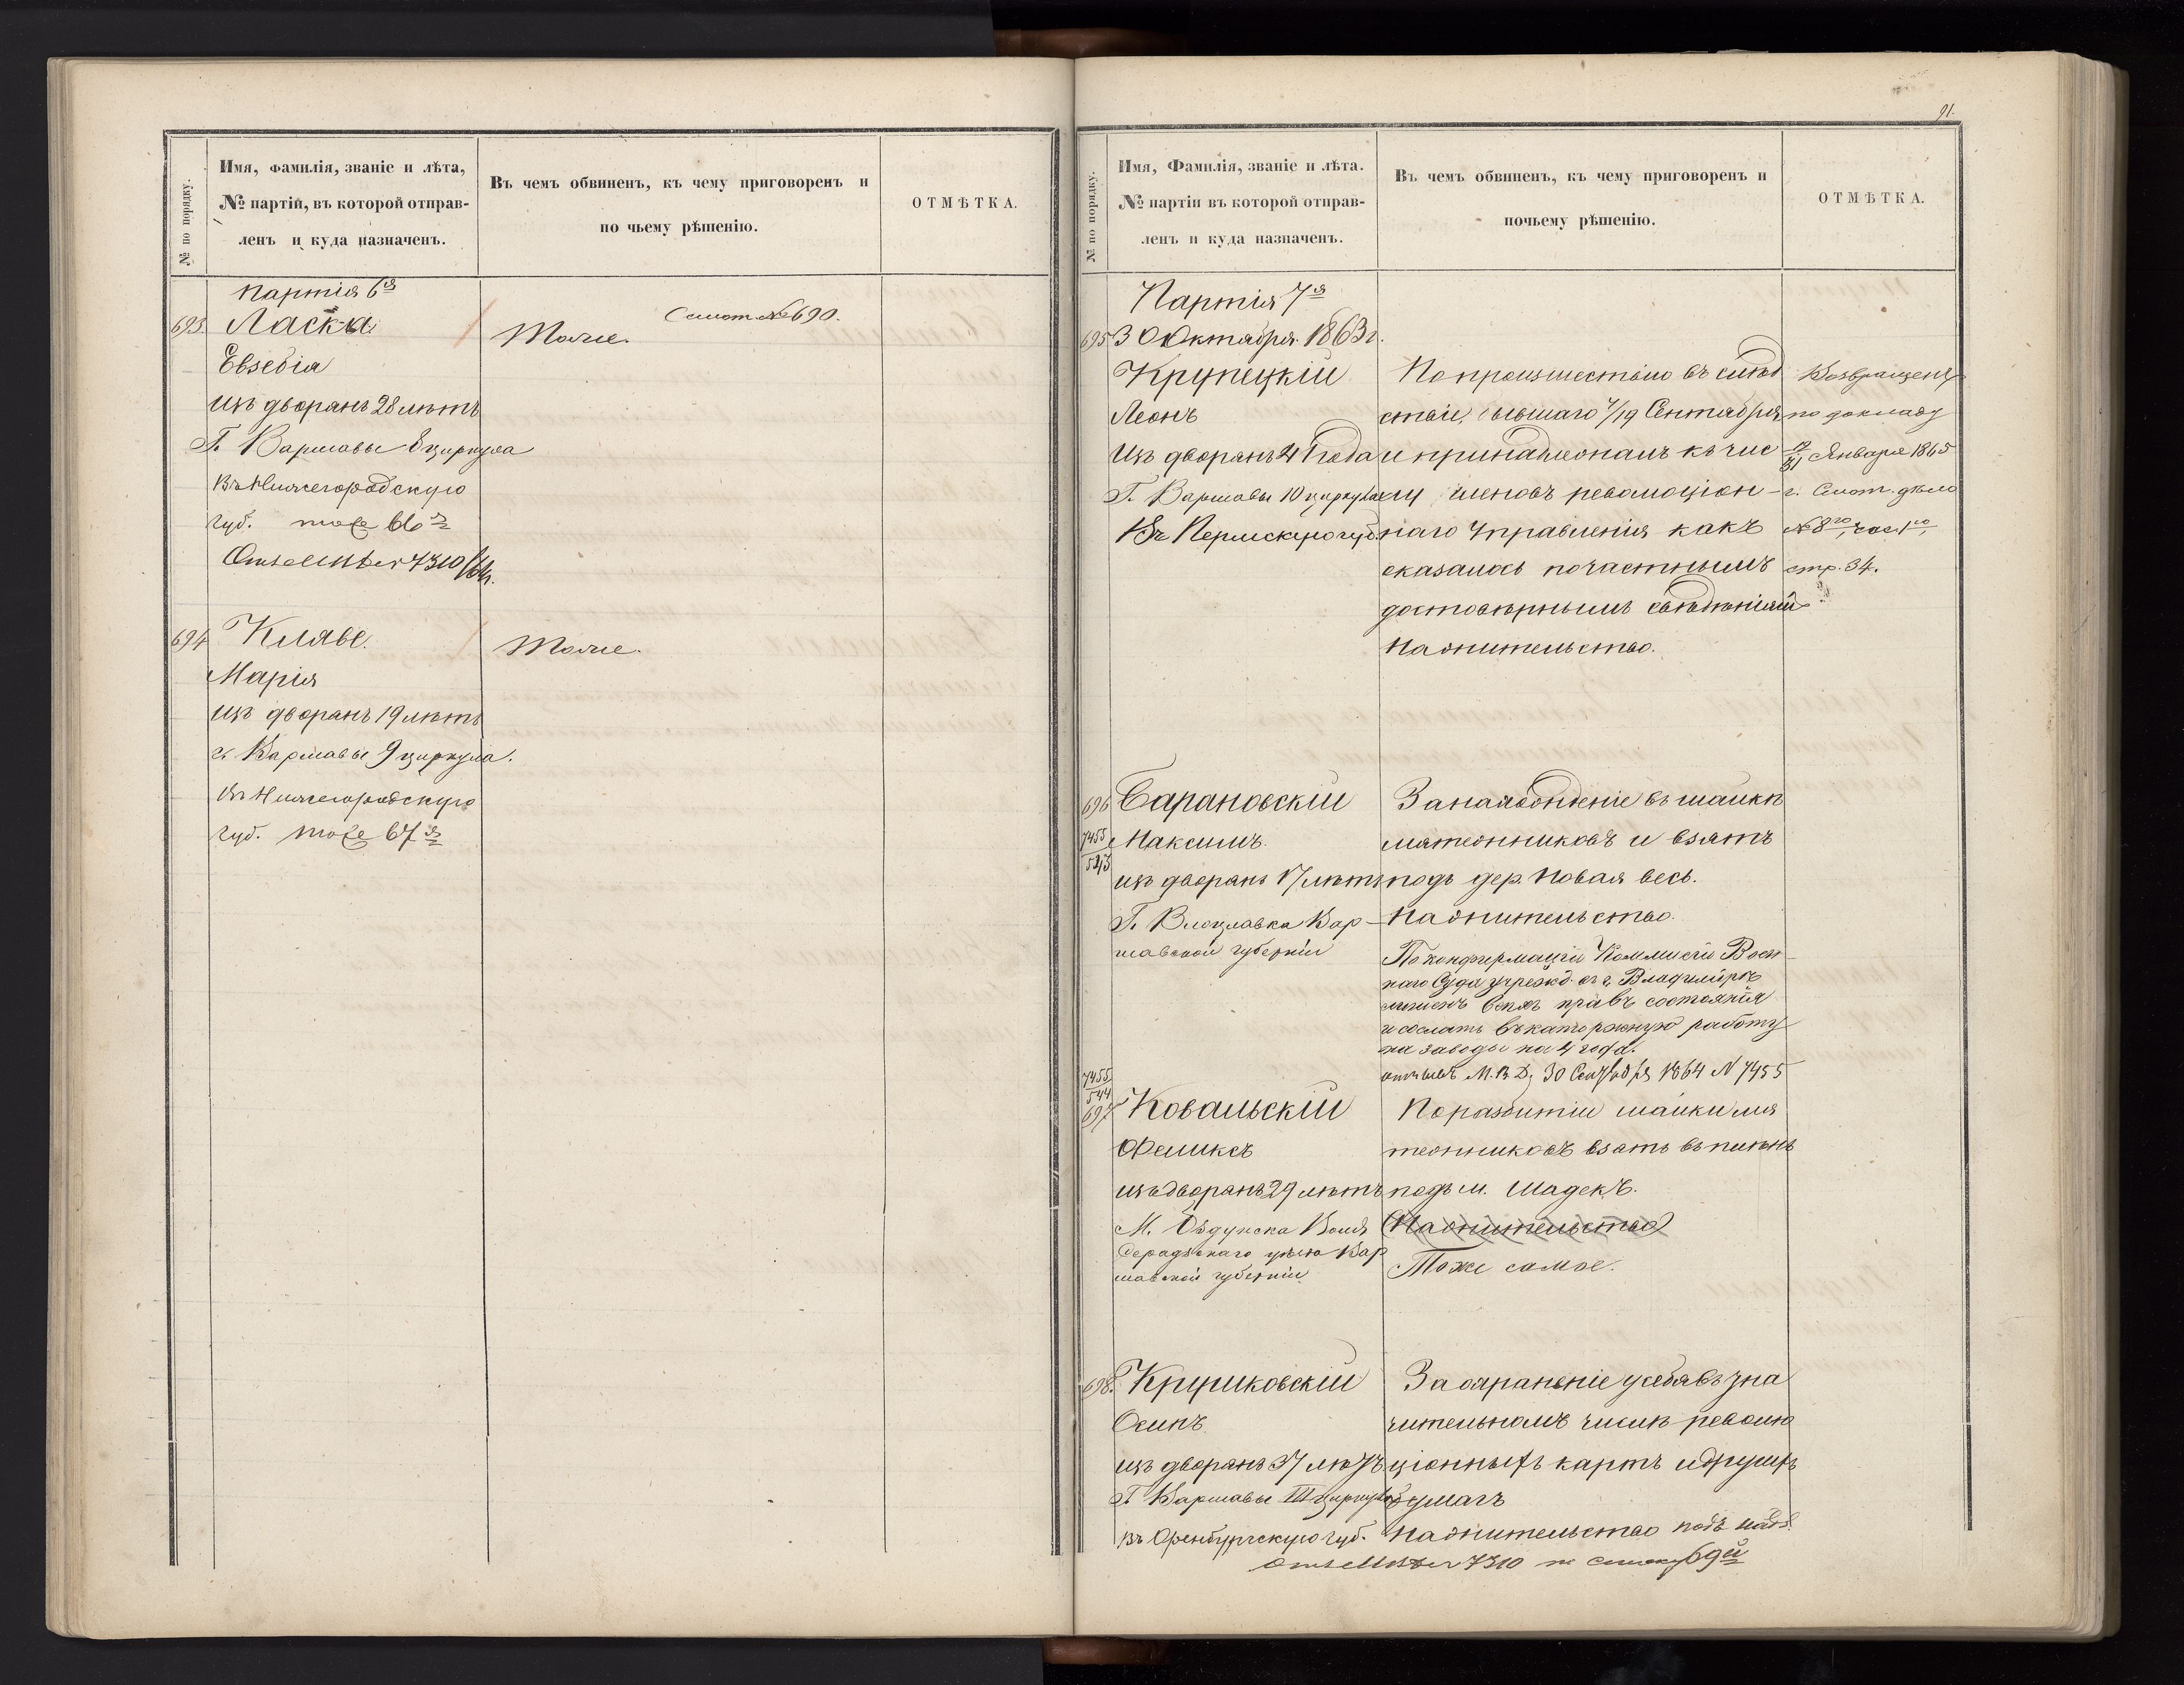 № по порядку.
Имя, Фамилія, званіе и лѣта,
№ партіи, въ которой отправ-
ленъ и куда назначенъ.
Въ чемъ обвиненъ, къ чему приговоренъ и
по чьему рѣшенію.
ОТМѢТКА.
Партія 6я
693 Ласка
Евзебія
изъ дворянъ 28 лѣтъ
Г. Варшавы 8 циркула
Въ Нижегородскую
губ. тоже 66я
Отзывъ МВД 7310
Смот. № 690.
Тоже.
694 Кляве.
Марія
изъ дворянъ 19 лѣтъ
г. Варшавы 9 циркула.
Въ Нижегородскую
губ. тоже 67я
Тоже.
91.
№ по порядку.
Имя, Фамилія, званіе и лѣта.
№ партіи въ которой отправ-
ленъ и куда назначенъ.
Въ чемъ обвиненъ, къ чему приговоренъ и
почьему рѣшенію.
ОТМѢТКА.
Партія 7я
30 Октября 1863 г.
695
Крупецкій
Леонъ
Изъ дворянъ 41 года
Г. Варшавы 10 циркула
Въ Пермскую губ.
По произшествію въ слѣд
ствіе, бывшаго 7/19 Сентября
и принадлежалъ къ чис
лу членовъ революціон-
наго Управленія какъ
оказалось по частнымъ
достовѣрнымъ свѣдѣніямъ
На жительство.
Возвращенъ
по докладу
19/31 Января 1865
г. Смот. дѣло
№ 8го, час. 1го,
стр. 34.
696 Барановскій
7455
543
Максимъ.
изъ дворянъ 17 лѣтъ
Г. Влоцлавка Вар-
шавской губерніи
За нахожденіе въ шайкѣ
мятежниковъ и взятъ
подъ дер. Новая весь.
На жительство.
По конфирмаціи Коммисіи Воен-
наго Суда учрежд. въ г. Владимірѣ
лишенъ всѣхъ правъ состоянія
и сослать въ каторжную работу
на заводы на 4 года.
отзывъ М.В.Д. 30 Сентября 1864 N 7455
7455
544
697 Ковальскій
Феликсъ
изъ дворянъ 29 лѣтъ
М. Здунска Воля
Серадзскаго уѣзда Вар
шавской губерніи
По разбитіи шайки мя
тежниковъ взятъ въ плѣнъ
подъ м. Шадекъ.
(На жительство)
Тоже самое.
698. Крушковскій
Осипъ
изъ дворянъ 37 лѣтъ
Г. Варшавы III циркула
въ Оренбургскую губ.
За храненіе у себя въ зна
чительномъ числѣ револю
ціонныхъ картъ и другихъ
бумагъ
На жительство подъ надз.
Отзывъ МВД 7310 по списку 69й